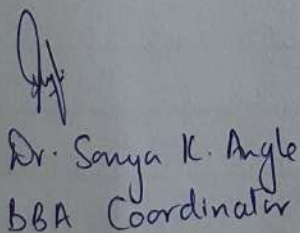 Dr. Sonya K. Angle
BBA Coordinator